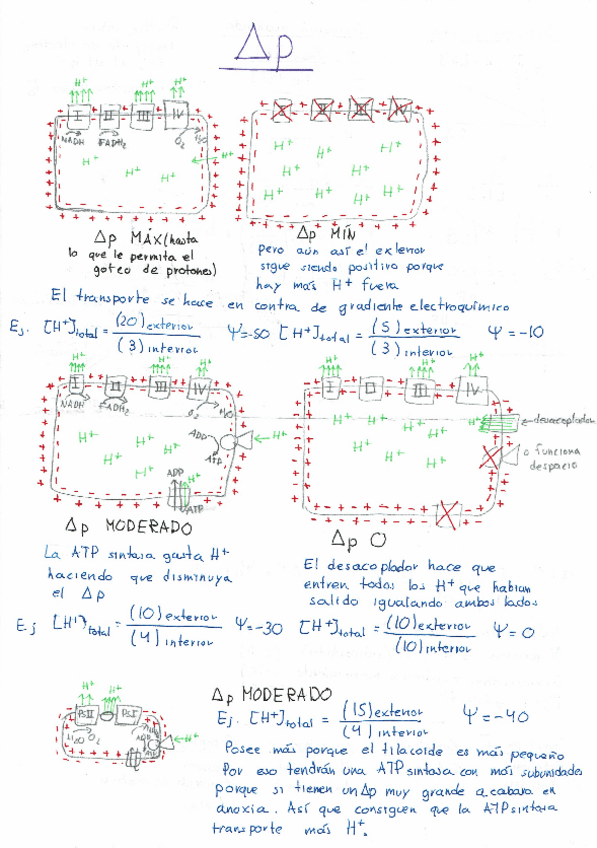 Δp
H+ H+ H+
I II III IV
NADH FADH2 O2 H2O
H+ H+ H+ H+
H+ H+
I II III IV
H+ H+
H+ H+ H+
H+ H+ H+ H+
Δp MÁX (hasta
lo que le permita el
goteo de protones)
Δp MÍN
pero aún así el exterior
sigue siendo positivo porque
hay más H+ fuera
El transporte se hace en contra de gradiente electroquímico
Ej. [H+]total = (20) exterior / (3) interior Ψ=-50
[H+]total = (5) exterior / (3) interior Ψ = -10
H+ H+ H+
I II III IV
NADH FADH2 O2 H2O
H+ H+ H+
H+ H+ H+
ADP ATP H+
ADP
ATP
H+ H+ H+
I II III IV
H+ H+ H+ H+
H+ H+ H+
desacoplador
o funciona
despacio
Δp MODERADO
La ATP sintasa gasta H+
haciendo que disminuya
el Δp
Δp O
El desacoplador hace que
entren todos los H+ que habían
salido igualando ambos lados
Ej [H+]total = (10) exterior / (4) interior Ψ=-30
[H+]total = (10) exterior / (10) interior Ψ = 0
H+ H+
PSII PSI
H2O O2 ADP ATP H+
Δp MODERADO
Ej. [H+]total = (15) exterior / (4) interior Ψ = -40
Posee más porque el tilacoide es más pequeño
Por eso tendrán una ATP sintasa con más subunidades
porque si tienen un Δp muy grande acabara en
anoxia. Así que consiguen que la ATP sintasa
transporte más H+.